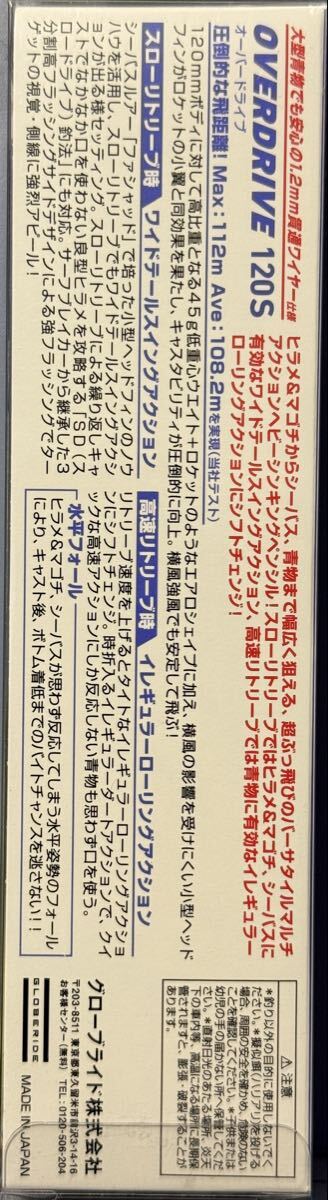 大型青物でも安心の1.2mm貫通ワイヤー仕様
OVERDRIVE 120S
オーバードライブ
ヒラメ&マゴチからシーバス、青物まで幅広く狙える、超ぶっ飛びのバーサタイルマルチ
アクションヘビーシンキングペンシル!スローリトリーブではヒラメ&マゴチ、シーバスに
有効なワイドテールスイングアクション、高速リトリーブでは青物に有効なイレギュラー
ローリングアクションにシフトチェンジ!
圧倒的な飛距離! Max:112m Ave:108.2mを実現(当社テスト)
120mmボディに対して高比重となる45g低重心ウエイト+ロケットのようなエアロシェイプに加え、横風の影響を受けにくい小型ヘッド
フィンがロケットの小翼と同効果を果たし、キャスタビリティが圧倒的に向上。横風強風でも安定して飛ぶ!
スローリトリーブ時 ワイドテールスイングアクション
シーバスルアー「ファシャッド」で培った小型ヘッドフィンのノウ
ハウを活用し、スローリトリーブでもワイドテールスイングアクシ
ョンが出る様セッティング。スローリトリーブによる繰り返しキャ
ストでなかなか口を使わない良型ヒラメを攻略する「SD(ス
ロードライブ)釣法」にも対応。サーフブレイカーから継承した3
分割高フラッシングサイドデザインによる強フラッシングでター
ゲットの視覚・側線に強烈アピール!
高速リトリーブ時 イレギュラーローリングアクション
リトリーブ速度を上げるとタイトなイレギュラーローリングアクショ
ンにシフトチェンジ。時折入るイレギュラーダートアクションで、クイ
ックな高速アクションにしか反応しない青物も思わず口を使う。
水平フォール
ヒラメ&マゴチ、シーバスが思わず反応してしまう水平姿勢のフォール
により、キャスト後、ボトム着底までのバイトチャンスを逃さない!!
⚠注意
*釣り以外の目的に使用しないでく
ださい。*擬似餌(ハリアリ)を投げる
場合、周囲の安全を確かめ、危険のない
ことを確認してください。*子供または
幼児の手の届かない所へ保管してくだ
さい。*直射日光のあたる場所、炎天
下の車内等、高温になる場所に長期保
管されますと、膨張、破裂することが
あります。
グローブライド株式会社
〒203-8511 東京都東久留米市前沢3-14-16
お客様センター(無料) TEL:0120-506-204
GLOBERIDE MADE IN JAPAN